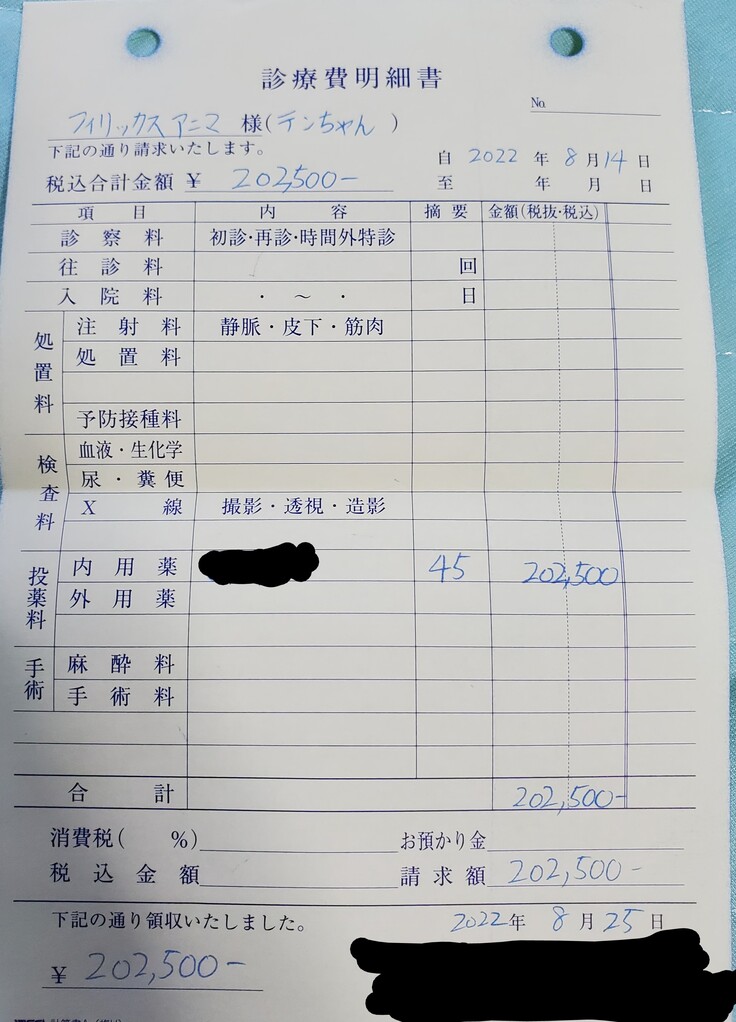 診療費明細書
No.
フィリックスアニマ 様(テンちゃん )
下記の通り請求いたします。
自 2022 年 8 月 14 日
税込合計金額 ¥ 202,500-
至 年 月 日
項 目 内 容 摘 要 金額(税抜・税込)
診 察 料 初診・再診・時間外特診
往 診 料 回
入 院 料 ・ ~ ・ 日
処置料 注 射 料 静脈・皮下・筋肉
処 置 料
予防接種料
検査料 血液・生化学
尿・糞便
X 線 撮影・透視・造影
投薬料 内 用 薬 45 202,500
外 用 薬
手術 麻 酔 料
手 術 料
合 計 202,500-
消費税( %) お預かり金
税 込 金 額 請 求 額 202,500-
下記の通り領収いたしました。 2022年 8 月 25 日
¥ 202,500-